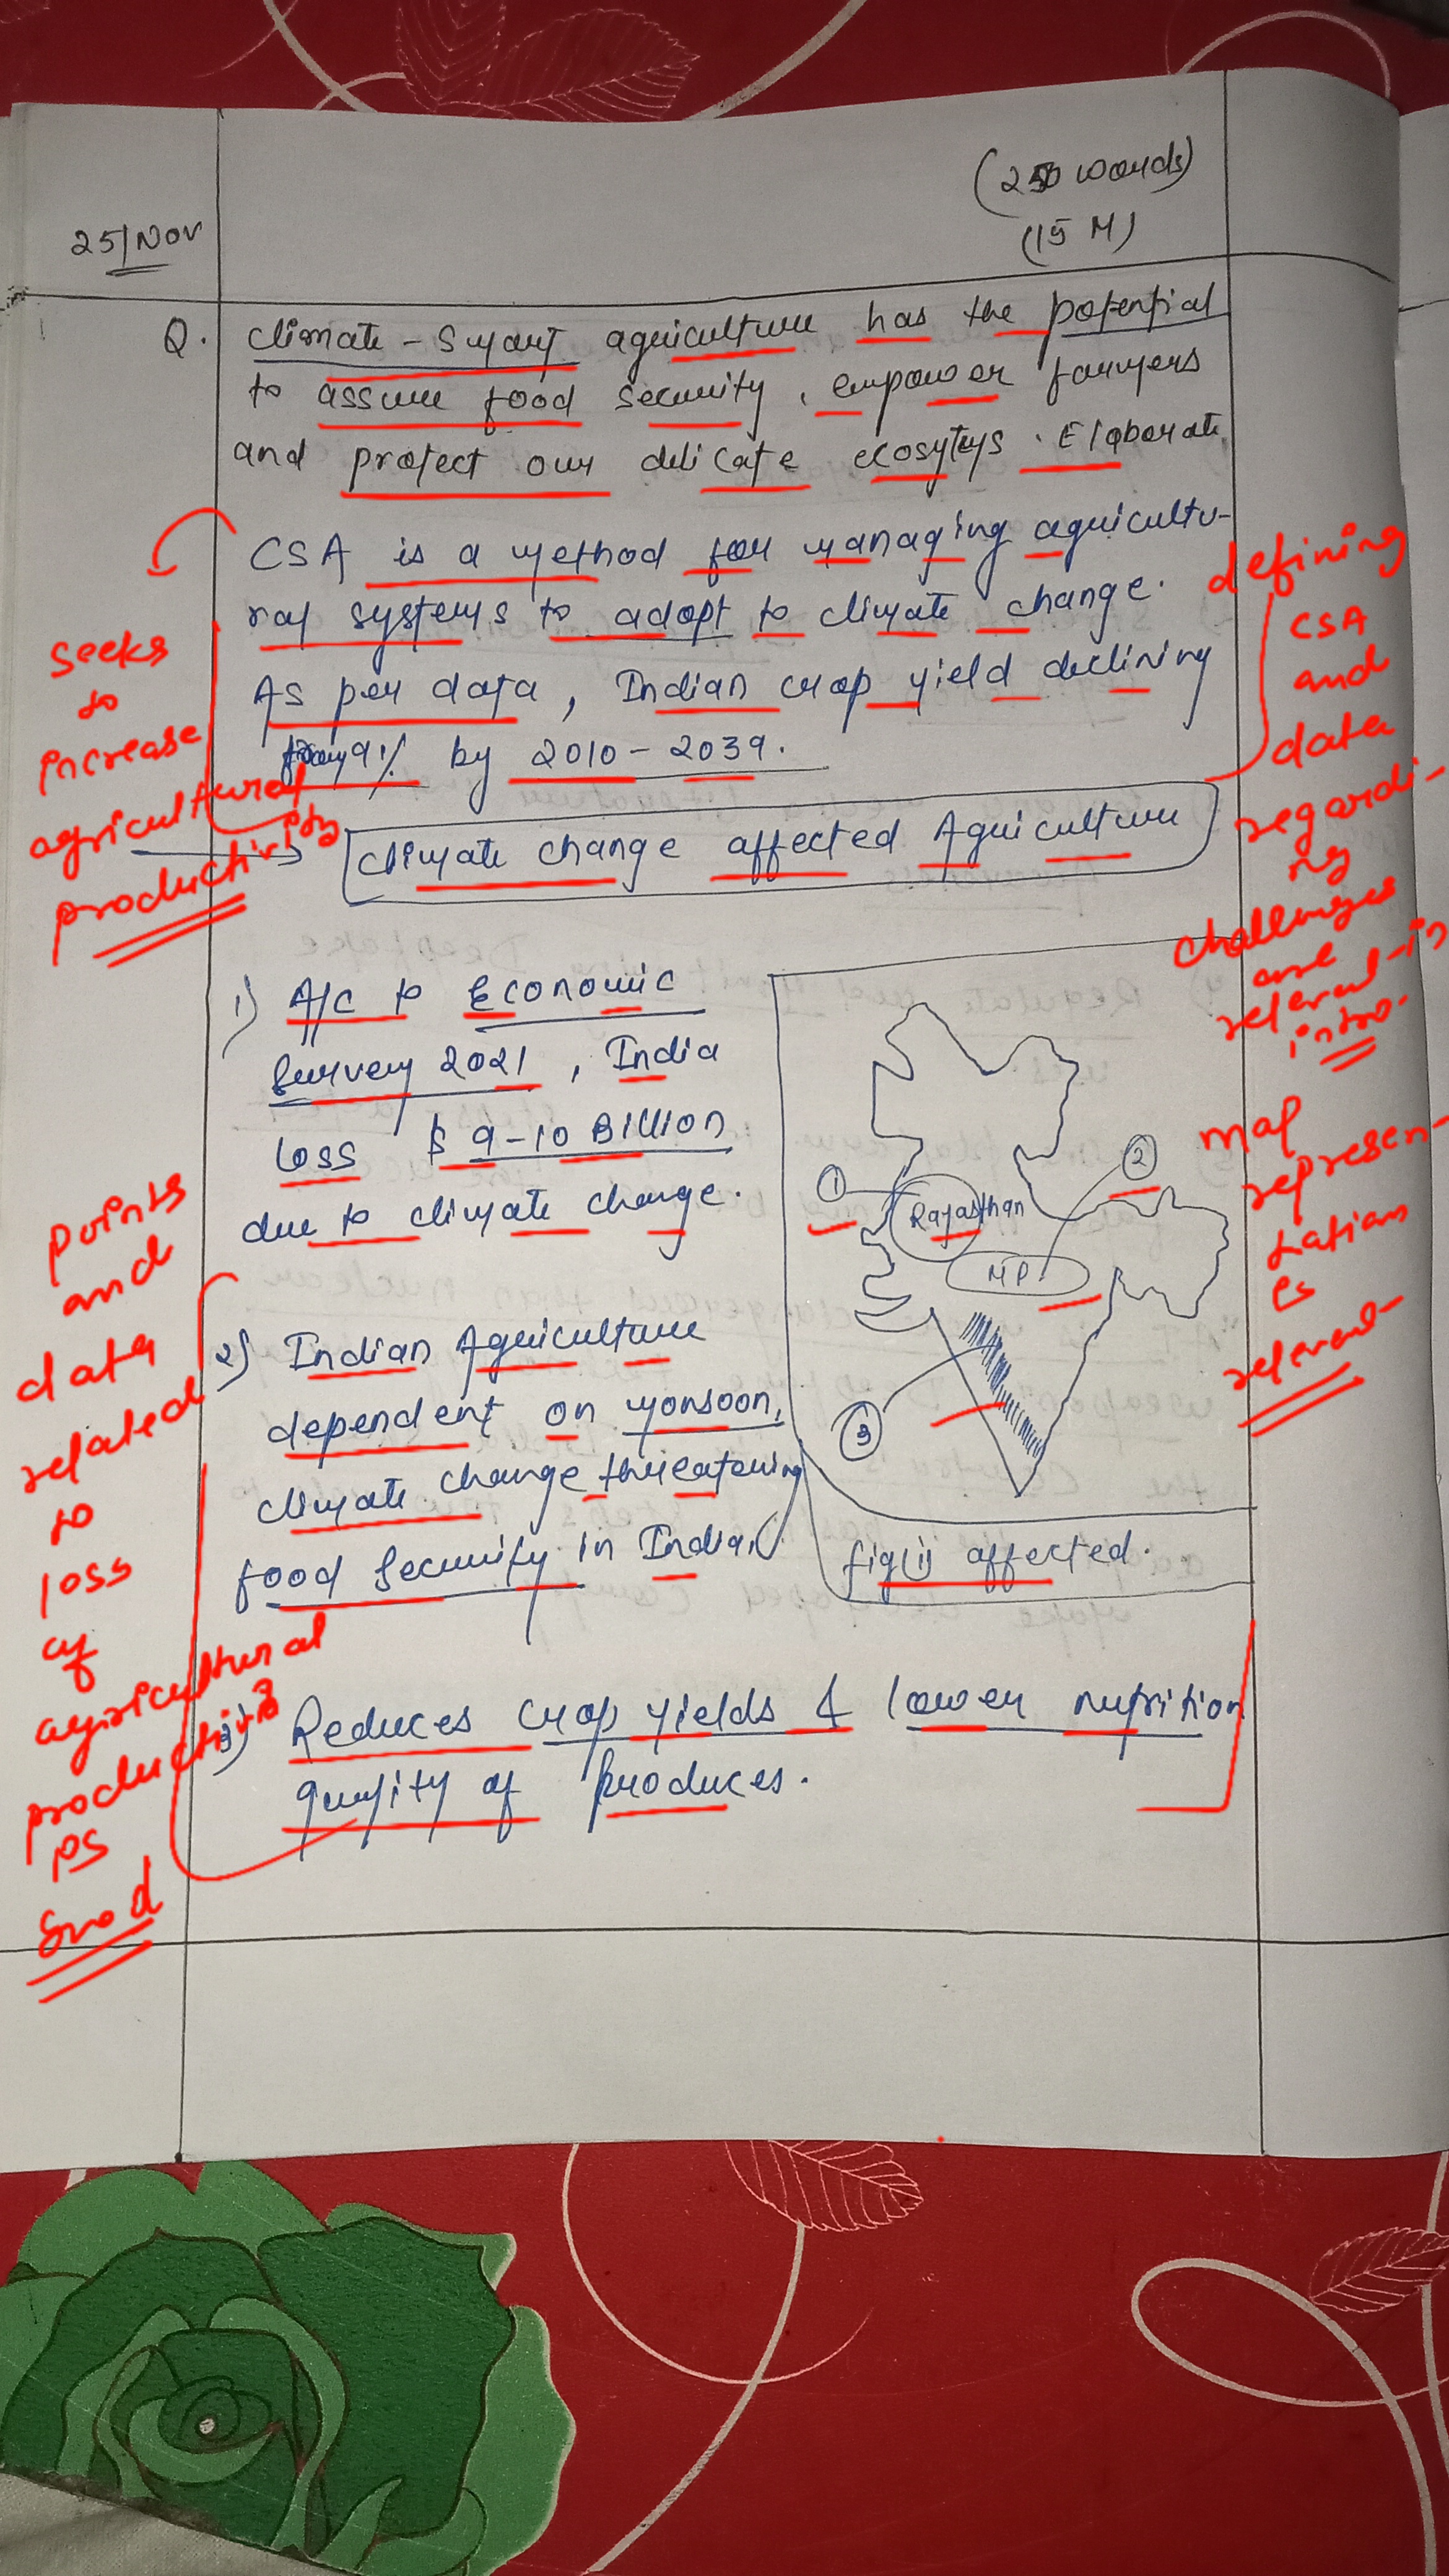 (250 words)
(15 M)
25/Nov
Q. Climate-Smart agriculture has the potential
to assure food security, empower farmers
and protect our delicate ecosytems. Elaborate
CSA is a method for managing agricultu-
ral systems to adopt to climate change.
As per data, Indian crop yield declining
from 9% by 2010-2039.
Climate change affected Agriculture
1) A/c to Economic
Survey 2021, India
loss $ 9-10 Billion
due to climate change.
2) Indian Agriculture
dependent on monsoon,
climate change threatening
food security in Indian
3) Reduces crop yields & lower nutrition
quality of produces.
1
Rajasthan
2
MP
3
fig(i) affected.
Seeks
to
increase
agricultural
productivity
defining
CSA
and
data
regardi-
ng
challenges
are
relevant in
intro.
map
represen-
tations
is
relevant
points
and
data
related
to
loss
of
agricultural
productivity
is
Good